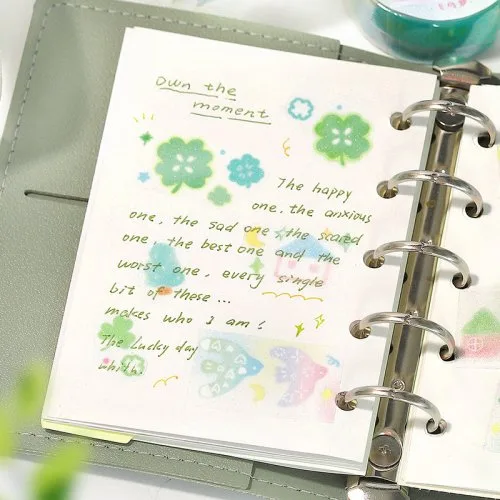 Own the
moment
The happy
one, the anxious
one, the sad one, the scared
one, the best one and the
worst one, every single
bit of these...
makes who I am!
The Lucky day